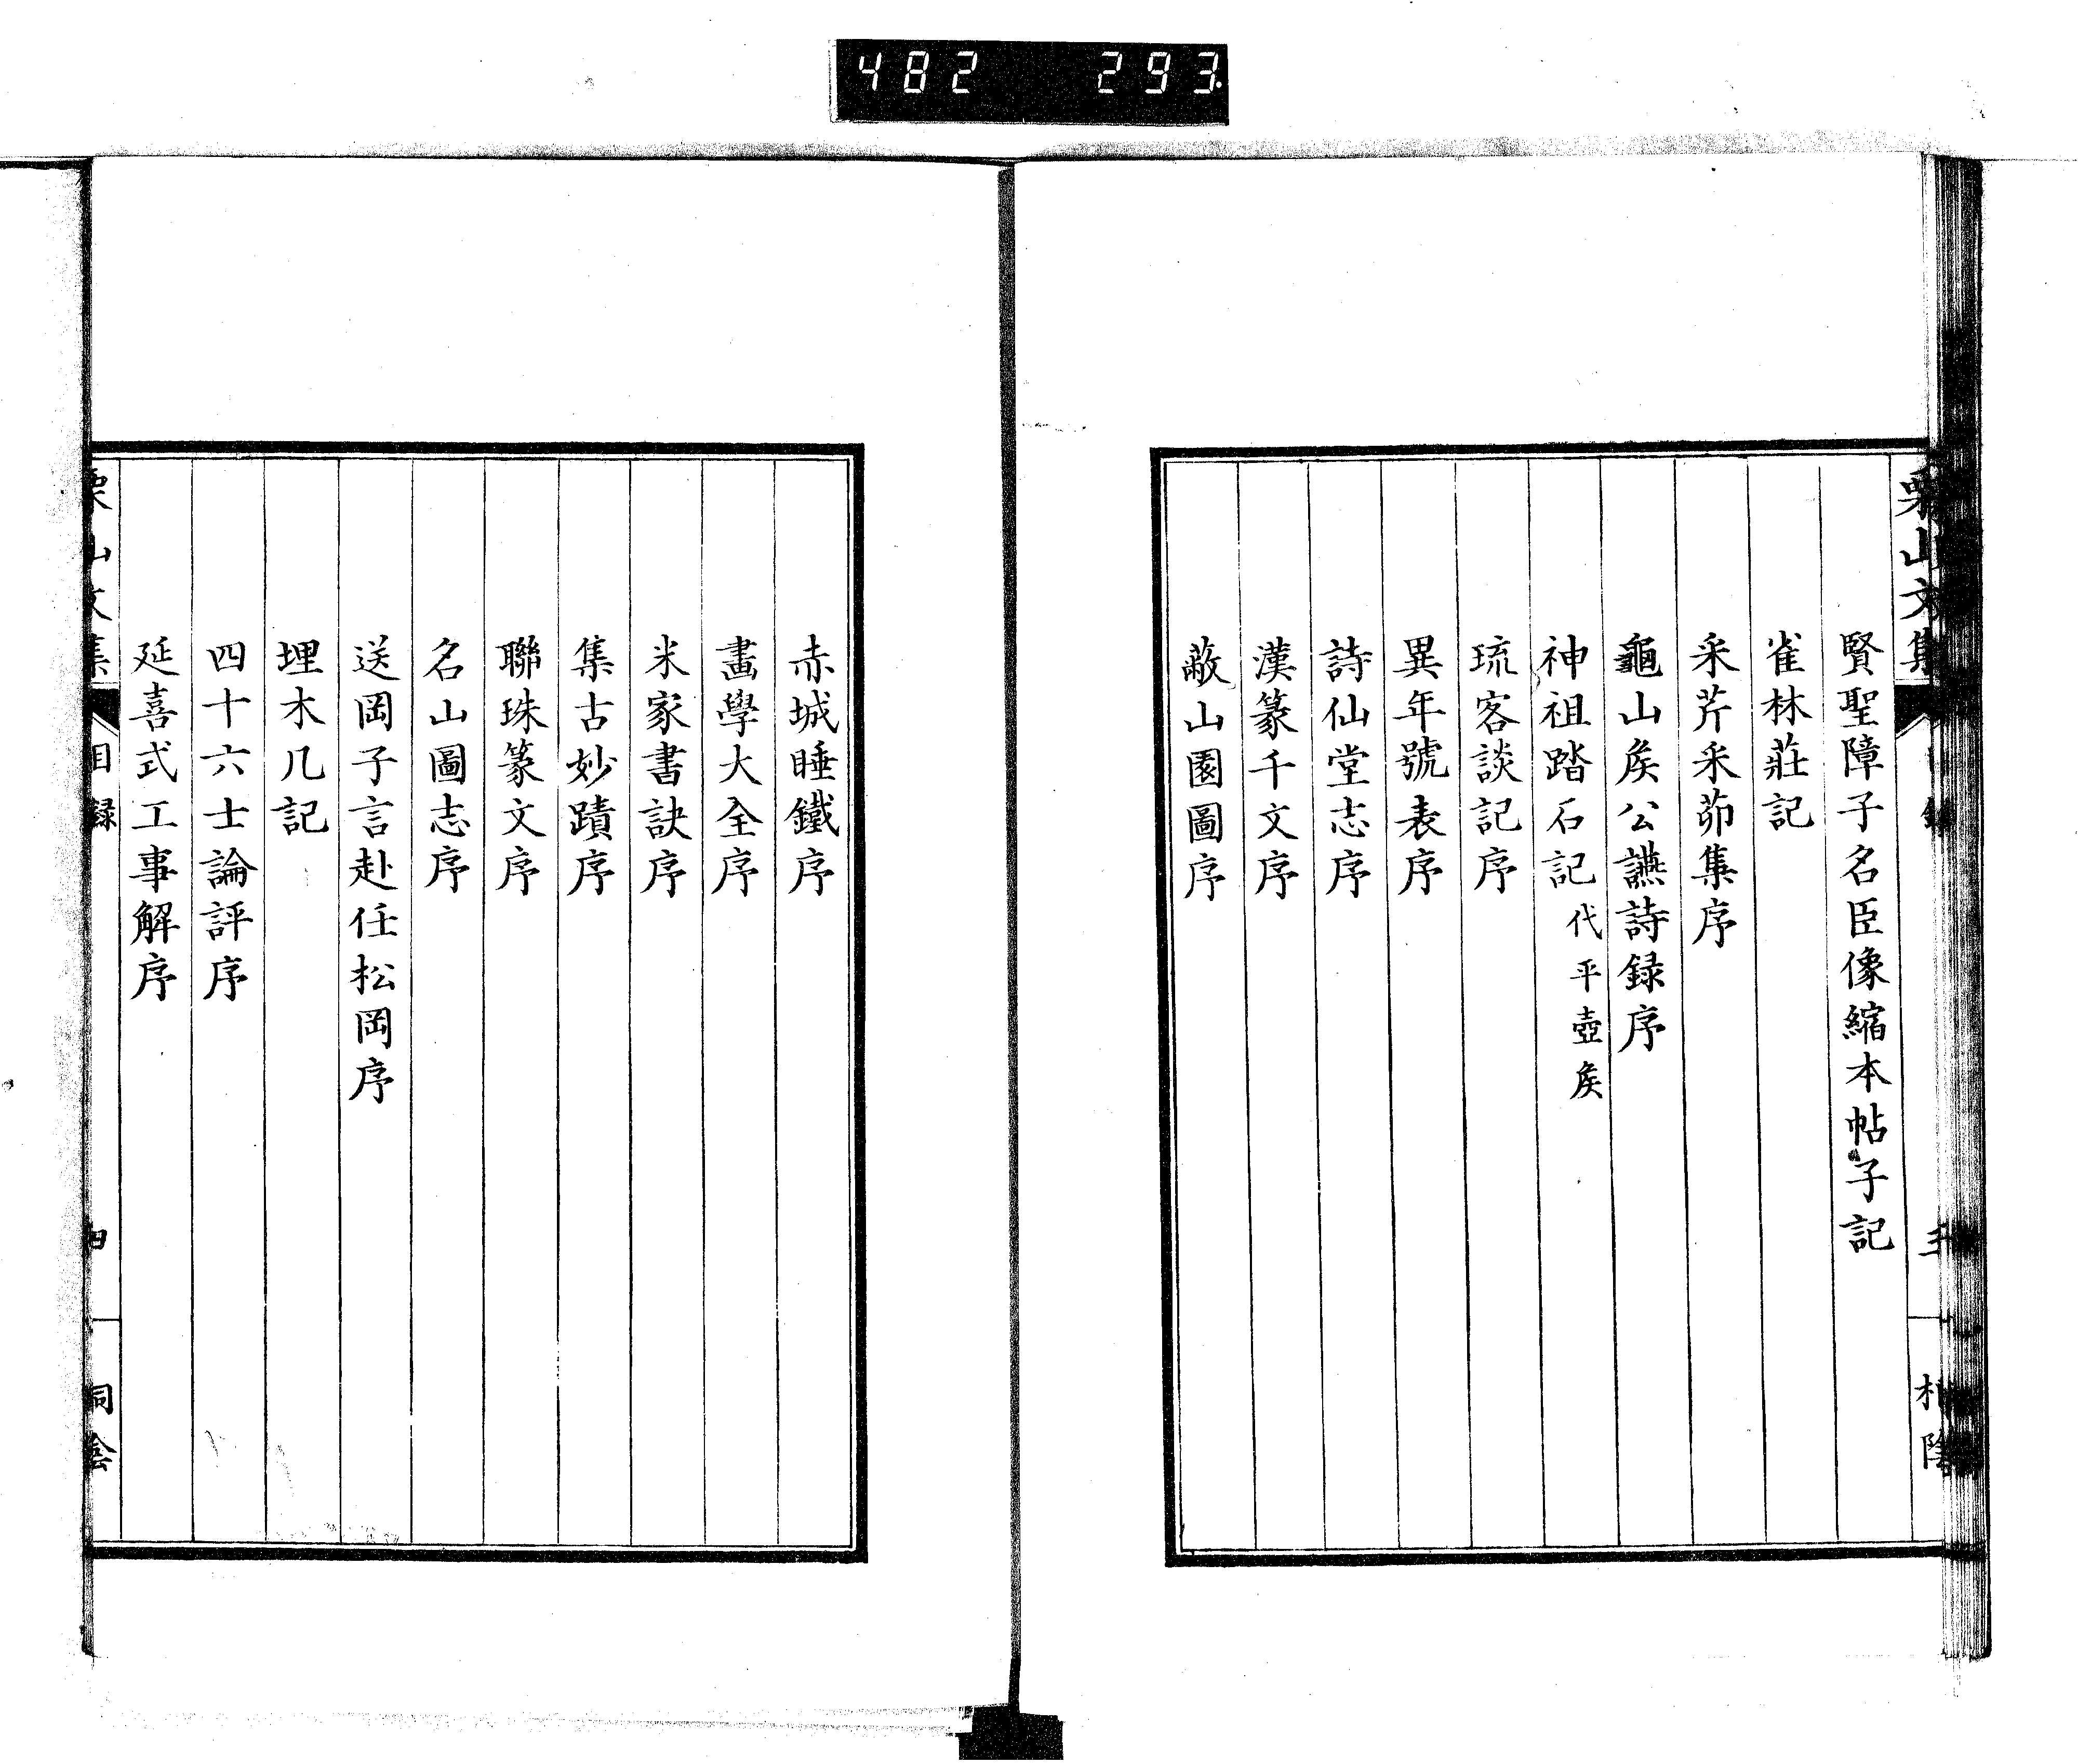 482 293.
栗山文集
賢聖障子名臣像縮本帖子記
雀林莊記
采芹采茆集序
龜山矦公讌詩録序
神祖踏石記代平壺矦
琉客談記序
異年號表序
詩仙堂志序
漢篆千文序
蔽山園圖序
赤城睡鐵序
畫學大全序
米家書訣序
集古妙蹟序
聯珠篆文序
名山圖志序
送岡子言赴任松岡序
埋木几記
四十六士論評序
延喜式工事解序
栗山文集 目録 四